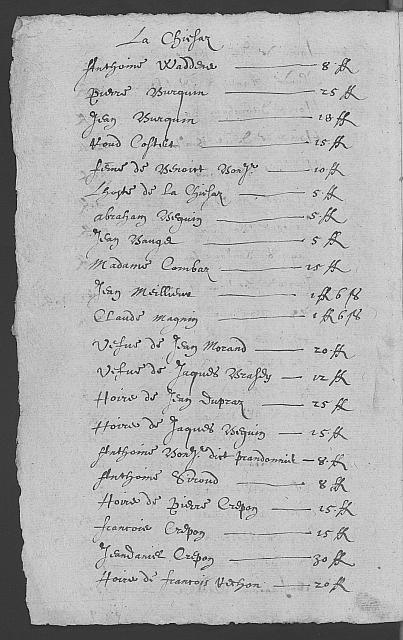 La Chiesaz
Anthoine Waddene — 8 ff
Pierre Burquin — 25 ff
Jean Burquin — 18 ff
Noud Costet — 15 ff
feme de Benoist — 10 ff
Lhoste de La Chiesaz — 5 ff
Abraham Beguin — 5 ff
Jean Bauge — 5 ff
Madame Combaz — 15 ff
Jean Meillieur — 1 ff 6 ß
Claude Magnin — 1 ff 6 ß
Vefve de Jean Morand — 20 ff
Vefve de Jaques — 12 ff
Hoirs de Jean Dupraz — 25 ff
Hoirs de Jaques Beguin — 15 ff
Anthoine dict — 8 ff
Anthoine Siroud — 8 ff
Hoirs de Pierre Crepon — 15 ff
francois Crepon — 15 ff
Jeandaniel Crepon — 30 ff
Hoirs de francois — 20 ff